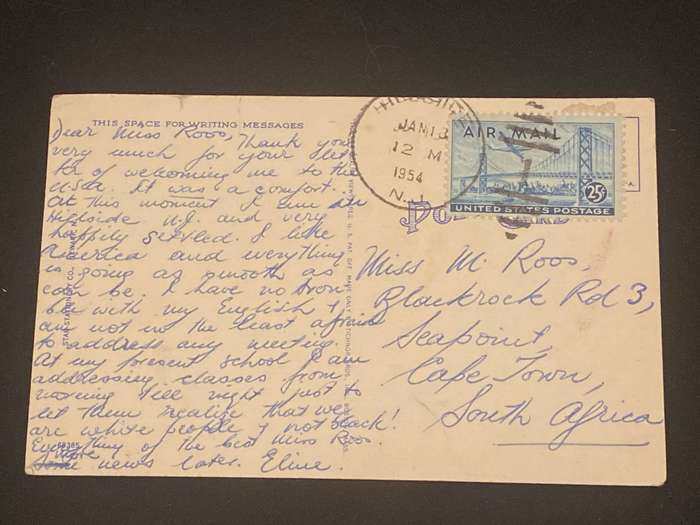 THIS SPACE FOR WRITING MESSAGES
Dear Miss Roos, Thank you
very much for your let
ter of welcoming me to the
U.S.A. It was a comfort.
At this moment I am in
Hillside N.J. and very
happily settled. I like
America and everything
is going as smooth as
can be. I have no trou
ble with my English &
am not in the least afraid
to address any meeting.
At my present school I am
addressing classes from
morning till night just to
let them realise that we
are white people & not black!
Everything of the best Miss Roos.
More
Some news later. Eline.
HILLSIDE
JAN 13
12 M
1954
N.J.
AIR MAIL
25¢
UNITED STATES POSTAGE
POST CARD
Miss M. Roos,
Blackrock Rd 3,
Seapoint,
Cape Town,
South Africa